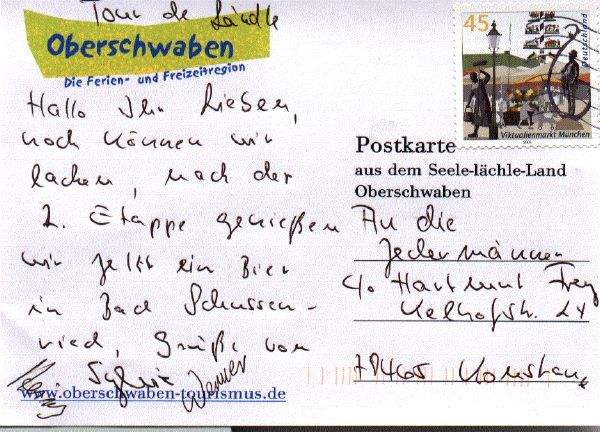 Tour de Ländle
Oberschwaben
Die Ferien- und Freizeitregion
Hallo Ihr Lieben,
noch können wir
lachen, nach der
2. Etappe genießen
wir jetzt ein Bier
in Bad Schussen-
ried, Grüße von
Sylvia Werner
www.oberschwaben-tourismus.de
45
Deutschland
Viktualienmarkt München
Postkarte
aus dem Seele-lächle-Land
Oberschwaben
An die
Jedermänner
c/o Hartmut Frey
Kelhofstr. 24
78465 Konstanz